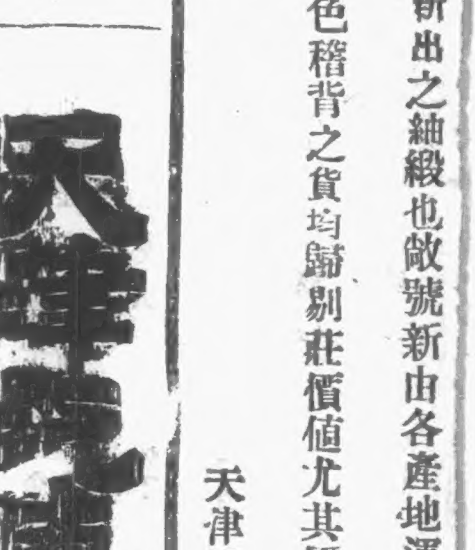 新出之紬緞也敝號新由各產地運
色稽背之貨均歸剔莊價値尤其
天津
天津